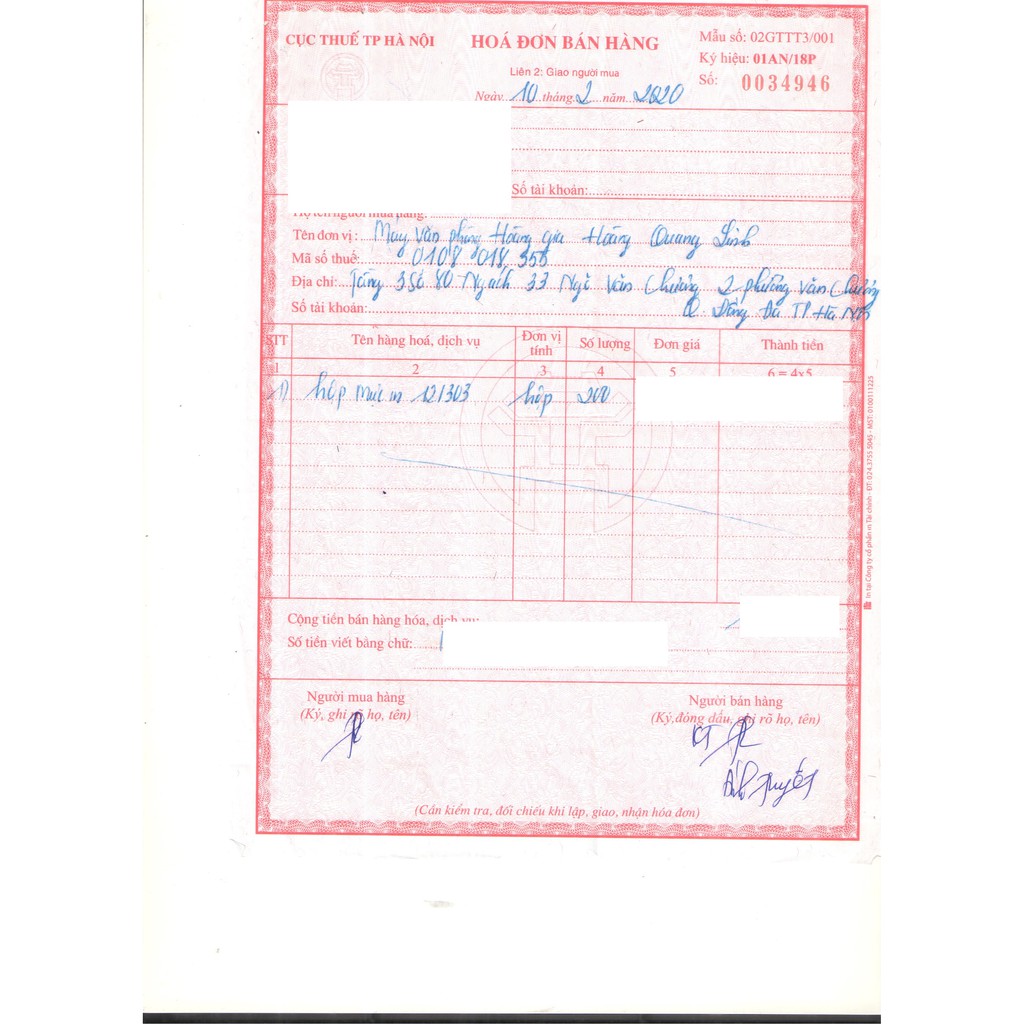 CỤC THUẾ TP HÀ NỘI
HOÁ ĐƠN BÁN HÀNG
Mẫu số: 02GTTT3/001
Ký hiệu: 01AN/18P
Liên 2: Giao người mua
Số: 0034946
Ngày 10 tháng 2 năm 2020
Số tài khoản:
Họ tên người mua hàng:
Tên đơn vị: Máy Văn phòng Hoàng gia Hoàng Quang Linh
Mã số thuế: 0108 018 355
Địa chỉ: Tầng 3 Số 80 Ngách 33 Ngõ Văn Chương 2 phường Văn Chương
Số tài khoản: Q. Đống Đa TP Hà Nội
STT Tên hàng hoá, dịch vụ Đơn vị tính Số lượng Đơn giá Thành tiền
1 2 3 4 5 6 = 4x5
1) hộp mực in 12A303 hộp 200
Cộng tiền bán hàng hóa, dịch vụ:
Số tiền viết bằng chữ:
Người mua hàng
(Ký, ghi rõ họ, tên)
Người bán hàng
(Ký,đóng dấu, ghi rõ họ, tên)
KT
Ánh Tuyết
(Cần kiểm tra, đối chiếu khi lập, giao, nhận hóa đơn)
In tại Công ty cổ phần in Tài chính - ĐT: 024.3755 5045 - MST: 0100111225